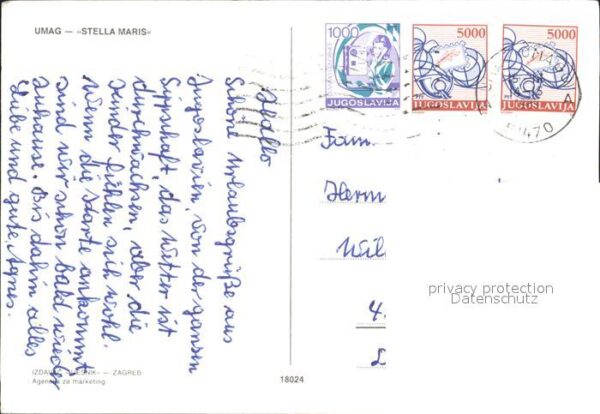 UMAG — »STELLA MARIS«
Hallo
Schöne Urlaubsgrüße aus
Jugoslawien, von der ganzen
Sippschaft, das Wetter ist
durchwachsen, aber die
Kinder fühlen sich wohl.
Wenn die Karte ankommt
sind wir schon bald wieder
zuhause. Bis dahin alles
Liebe und gute, Agnes.
IZDAVAČ »VJESNIK« — ZAGREB
Agencija za marketing
18024
1000
JUGOSLAVIJA
5000
JUGOSLAVIJA
5000
JUGOSLAVIJA
52470
A
Fam.
Herm
Wil
4.
D
privacy protection
Datenschutz